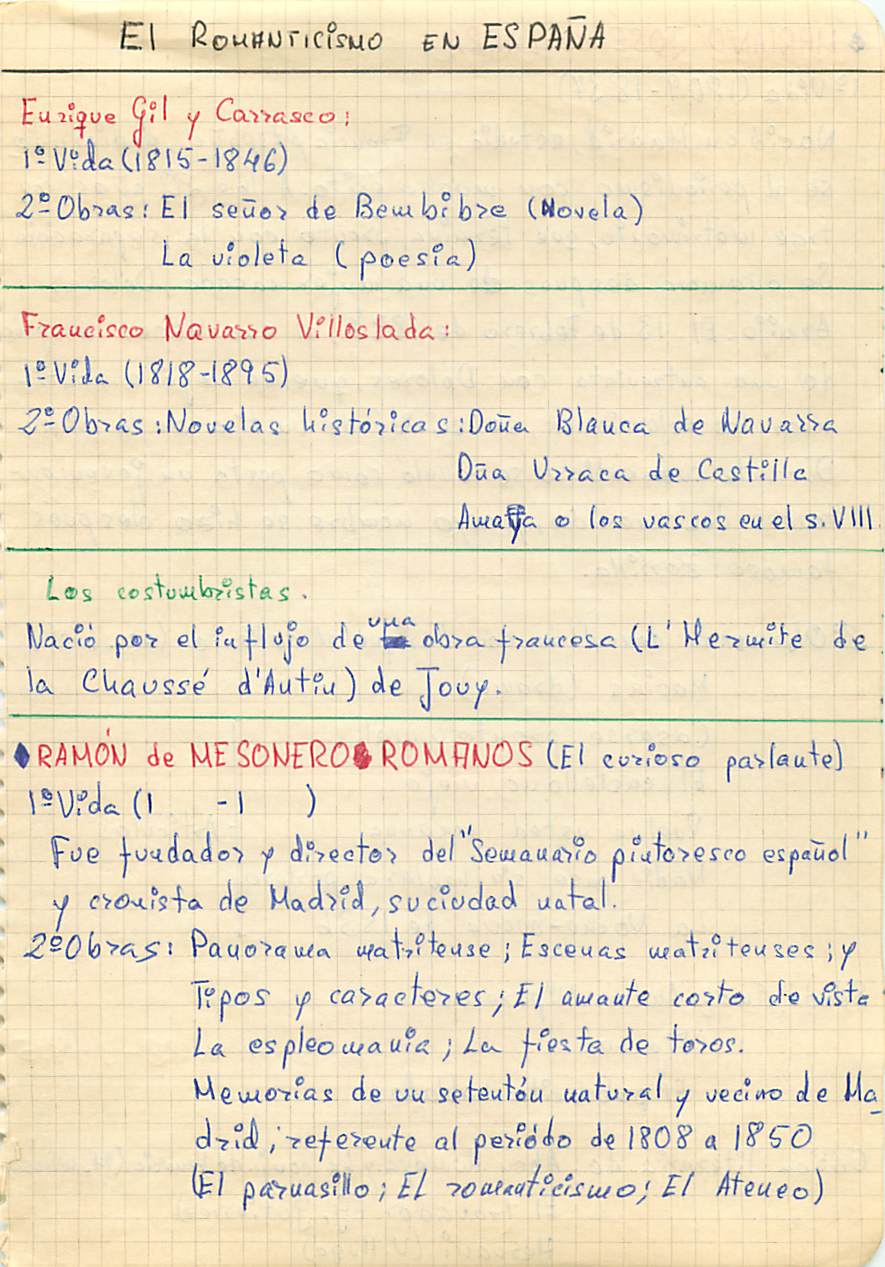 El ROMANTICISMO EN ESPAÑA
Enrique Gil y Carrasco:
1º Vida (1815-1846)
2º Obras: El señor de Bembibre (Novela)
La violeta (poesía)
Francisco Navarro Villoslada:
1º Vida (1818-1895)
2º Obras: Novelas históricas: Doña Blanca de Navarra
Dña Urraca de Castilla
Amaya o los vascos en el s. VIII.
Los costumbristas.
Nació por el influjo de una obra francesa (L'Hermite de
la Chaussé d'Antin) de Jouy.
RAMÓN de MESONERO ROMANOS (El curioso parlante)
1º Vida (1 -1 )
Fue fundador y director del "Semanario pintoresco español"
y cronista de Madrid, su ciudad natal.
2º Obras: Panorama matritense; Escenas matritenses; y
Tipos y caracteres; El amante corto de vista
La espleomania; La fiesta de toros.
Memorias de un setentón natural y vecino de Ma_
drid, referente al periódo de 1808 a 1850
(El parnasillo; El romanticismo; El Ateneo)